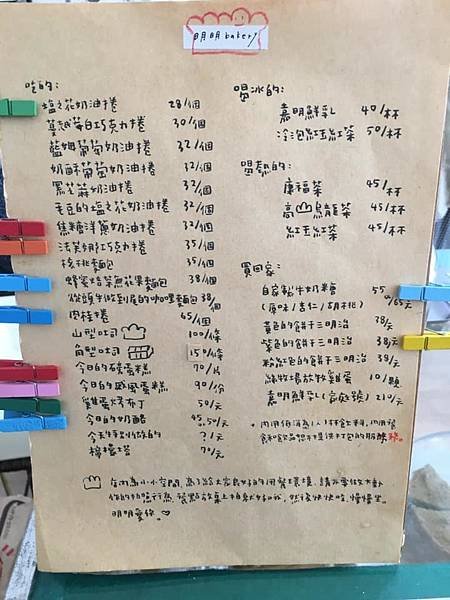 明明 bakery
吃的:
塩之花奶油捲 28/個
蔓越莓白巧克力捲 30/個
藍姆葡萄奶油捲 32/個
奶酥葡萄奶油捲 32/個
黑芝麻奶油捲 32/個
毛豆的塩之花奶油捲 32/個
焦糖洋蔥奶油捲 32/個
法芙娜巧克力捲 35/個
核桃麵包 35/個
蜂蜜焙茶無花果麵包 38/個
從頭午做到尾的咖哩麵包 38/個
肉桂捲 45/個
山型吐司 100/條
角型吐司 150/條
今日的磅蛋糕 70/片
今日的戚風蛋糕 90/份
雞蛋烤布丁 50/元
今日的奶酪 45.50/元
今天特別做的 ?/元
檸檬塔 70/元
喝冰的:
嘉明鮮乳 40/杯
冷泡紅玉紅茶 50/杯
喝熱的:
康福茶 45/杯
高山烏龍茶 45/杯
紅玉紅茶 45/杯
買回家:
自家製牛奶糖 55
(原味/杏仁/胡桃) 65/元
黃色的餅干三明治 38/元
紫色的餅干三明治 38/元
粉紅色的餅干三明治 38/元
綠牧場放牧雞蛋 10/顆
嘉明鮮乳(家庭號) 210/元
* 內用低消為1人1杯飲料,內用餐
飲和飲品恕不提供打包的服務
在明明小小空間,為了給大家良好的用餐環境,請不要做大動
作的拍照行為,餐點放桌上拍家好可以,然後快快吃,慢慢坐。
明明愛你。♡